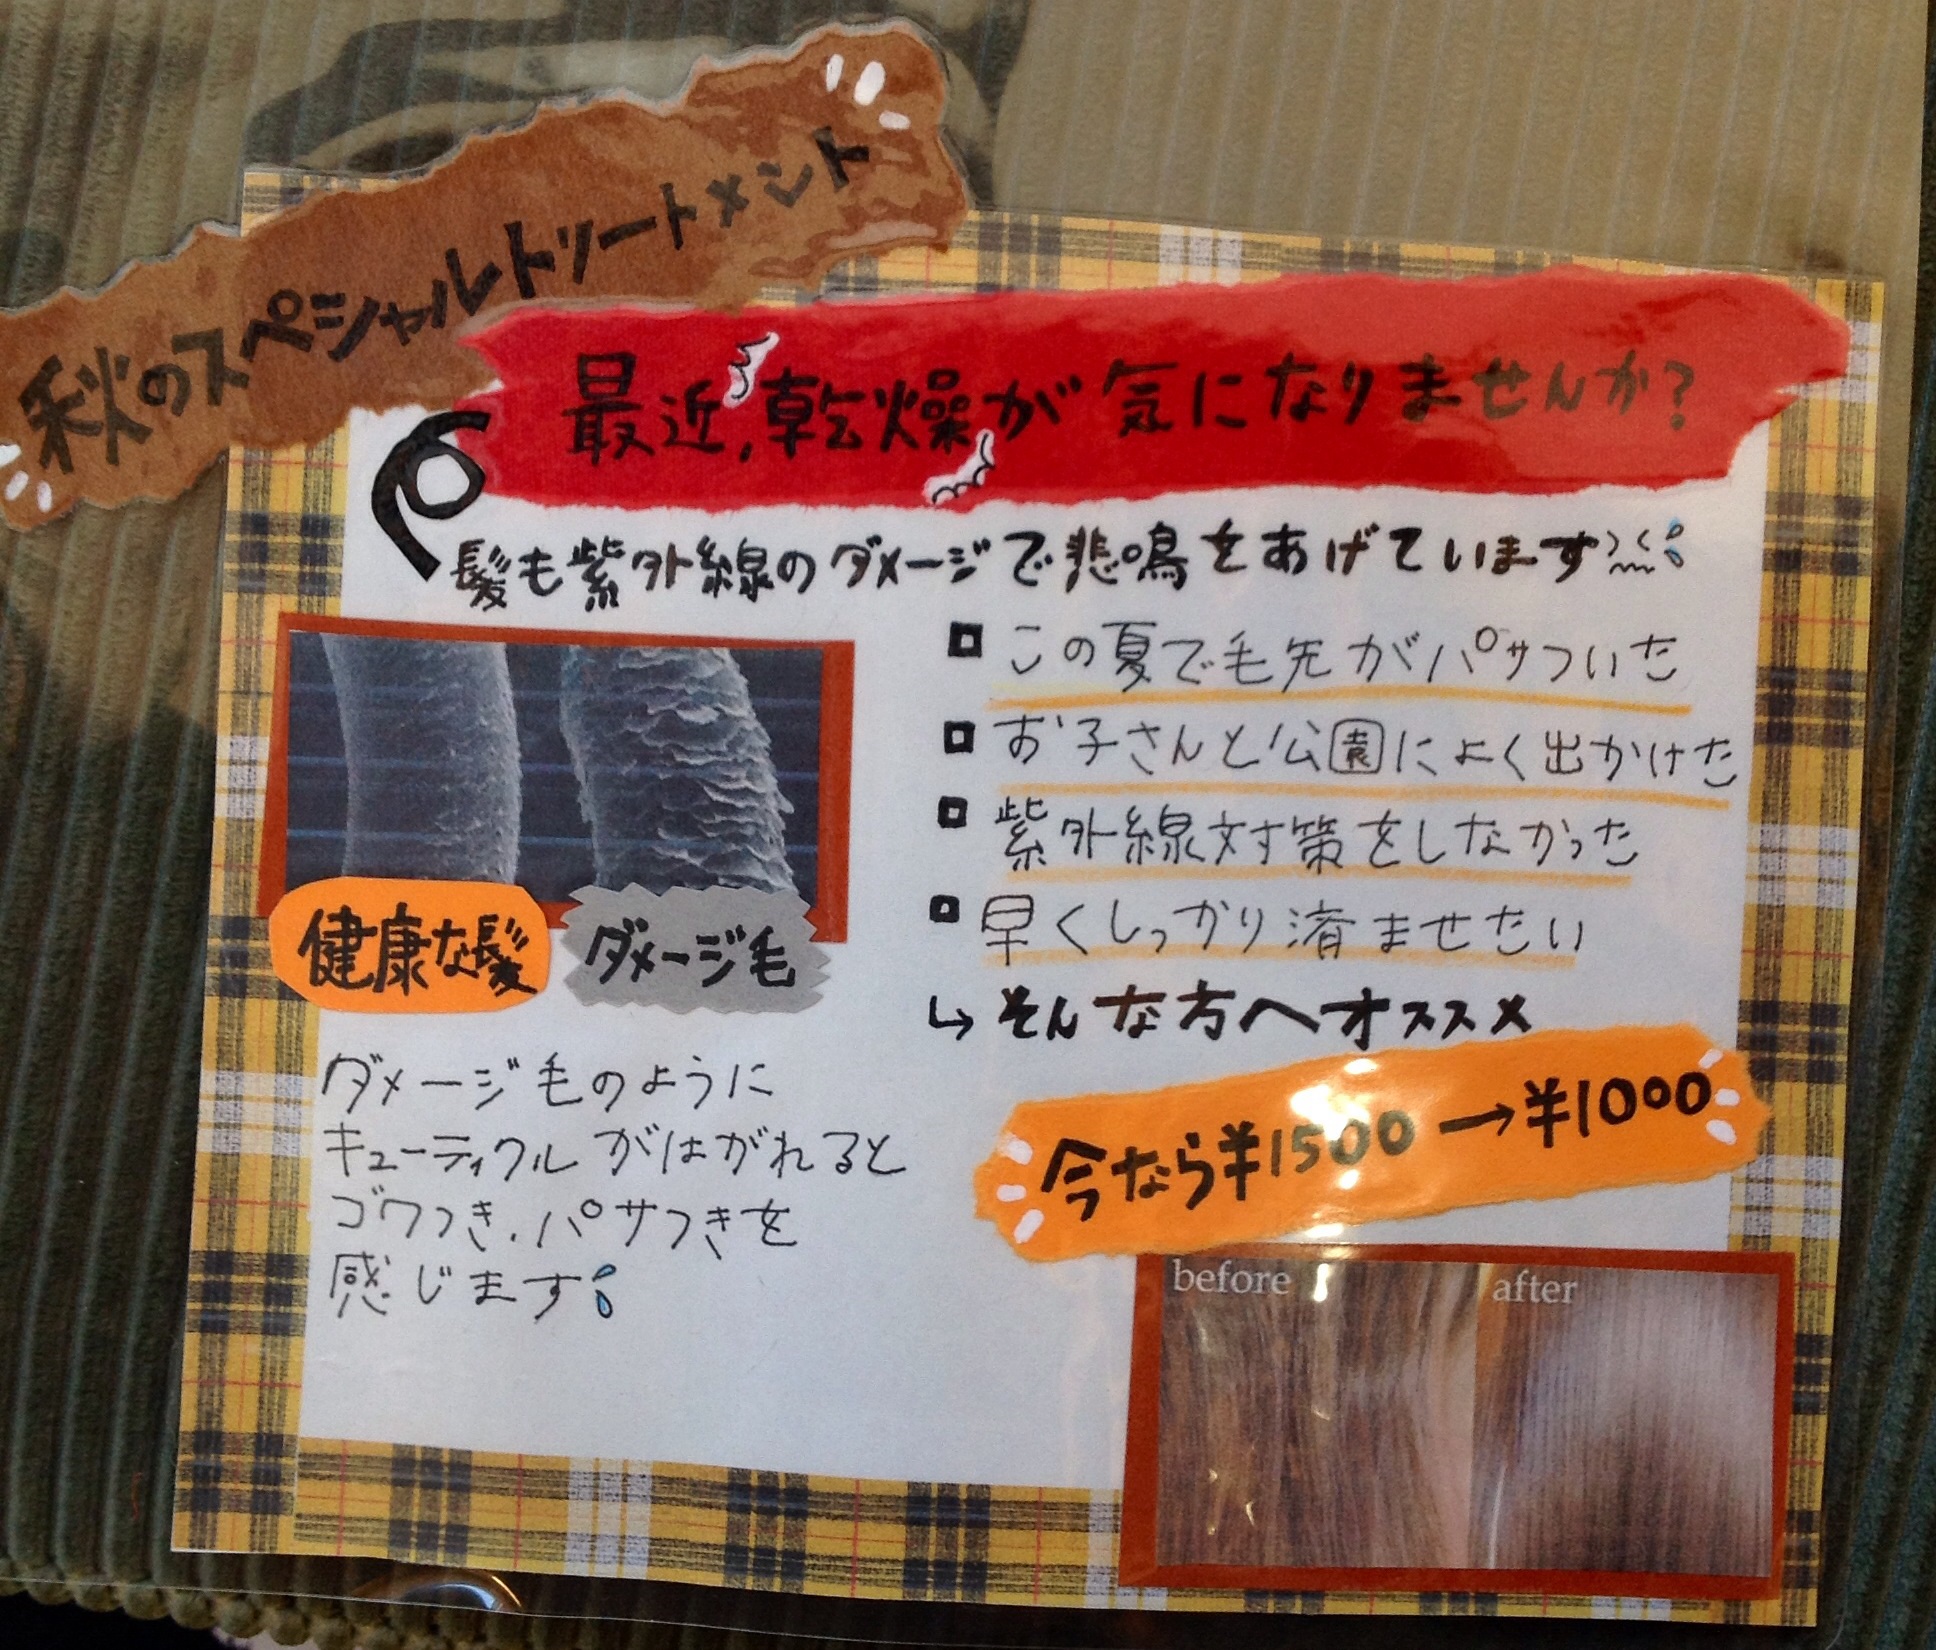 秋のスペシャルトリートメント
最近、乾燥が気になりませんか?
髪も紫外線のダメージで悲鳴をあげています
□ この夏で毛先がパサついた
□ お子さんと公園によく出かけた
□ 紫外線対策をしなかった
□ 早くしっかり済ませたい
↳ そんな方へオススメ
今なら¥1500→¥1000
健康な髪
ダメージ毛
ダメージ毛のように
キューティクルがはがれると
ゴワつき、パサつきを
感じます
before
after